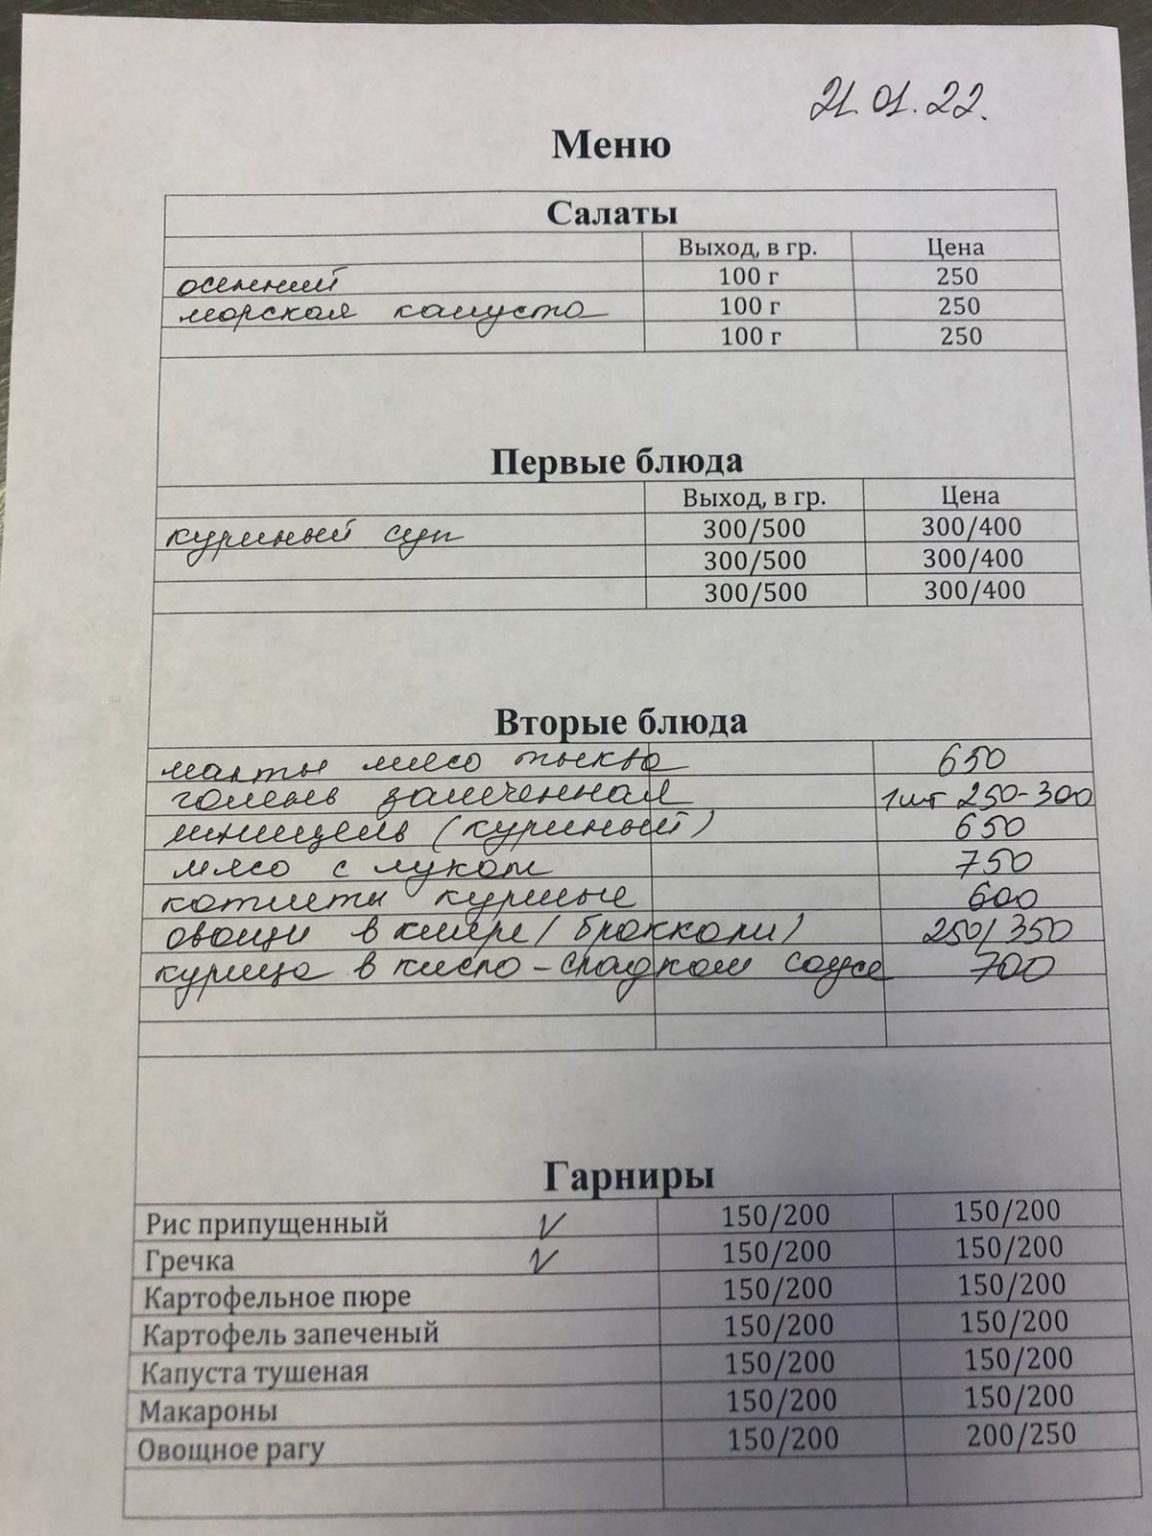 21.01.22.
Меню
Салаты
Выход, в гр. Цена
осенний 100 г 250
морская капуста 100 г 250
100 г 250
Первые блюда
Выход, в гр. Цена
куриный суп 300/500 300/400
300/500 300/400
300/500 300/400
Вторые блюда
манты мясо тыква 650
голень запеченная 1 шт 250-300
шницель (куриный) 650
мясо с луком 750
котлеты куриные 600
овощи в кляре (брокколи) 250/350
курица в кисло-сладком соусе 700
Гарниры
Рис припущенный V 150/200 150/200
Гречка V 150/200 150/200
Картофельное пюре 150/200 150/200
Картофель запеченый 150/200 150/200
Капуста тушеная 150/200 150/200
Макароны 150/200 150/200
Овощное рагу 150/200 200/250